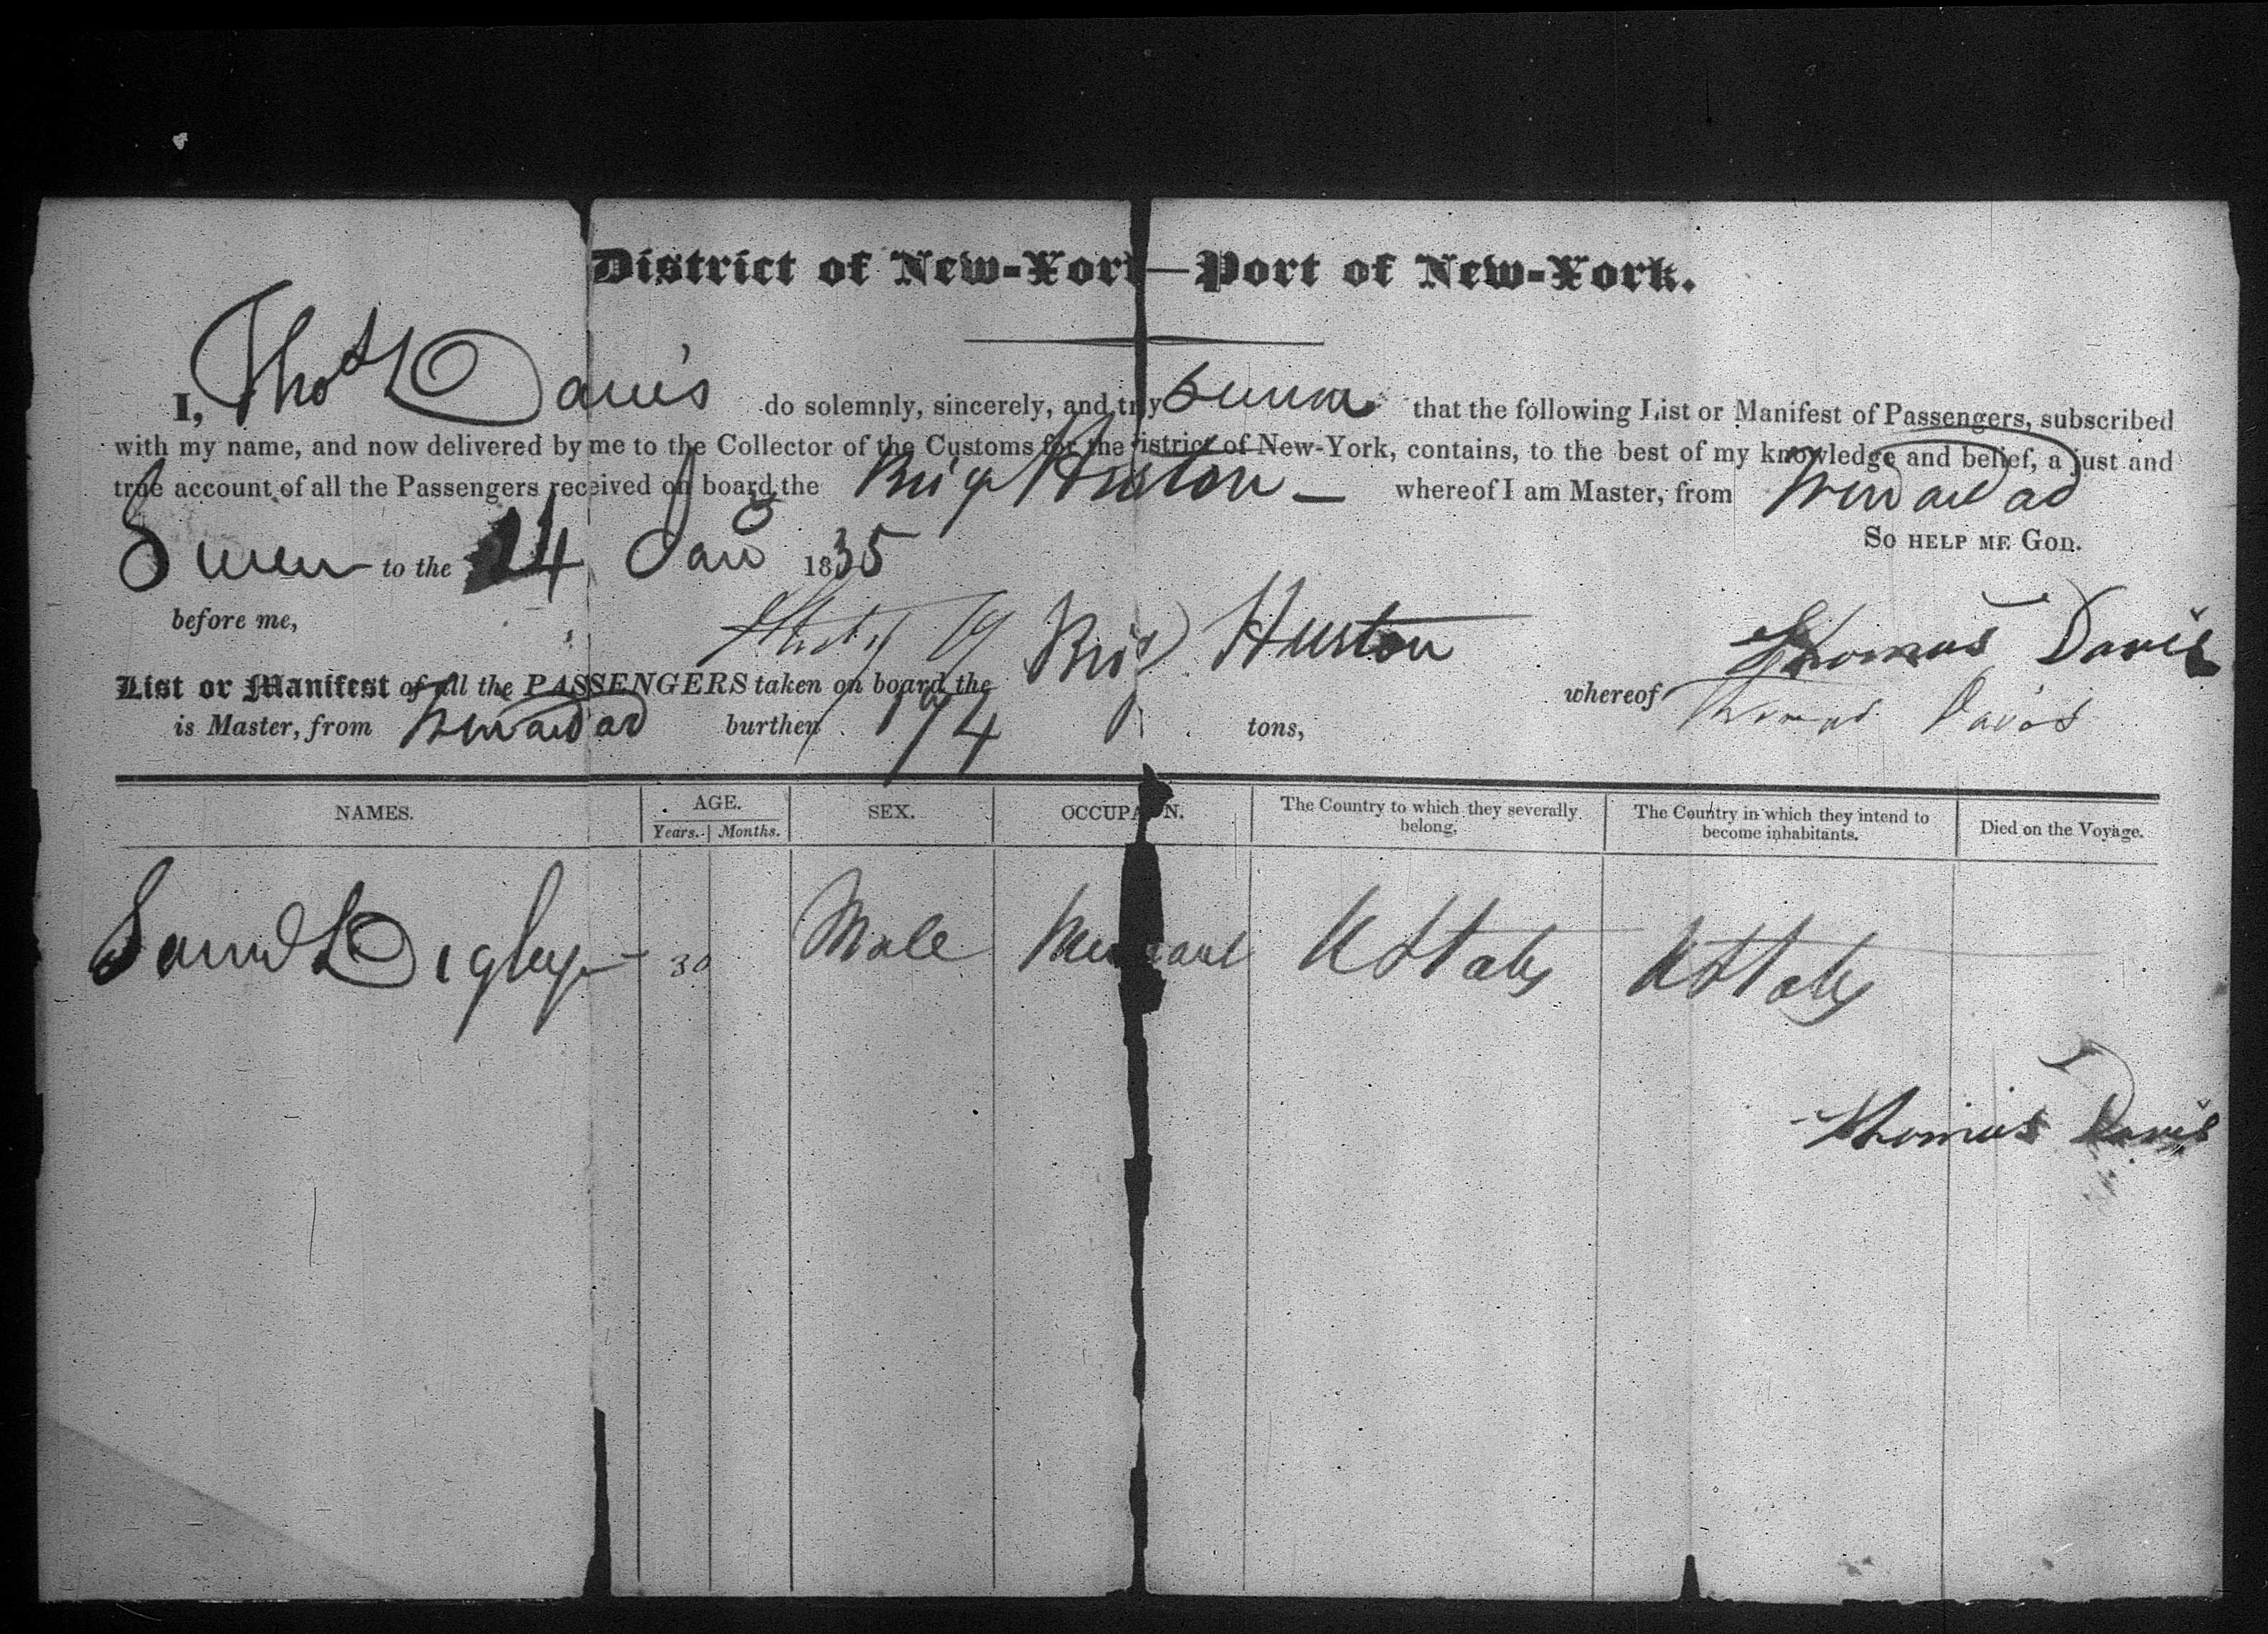 District of New-York—Port of New-York.
I, Thos Davis do solemnly, sincerely, and truly swear that the following List or Manifest of Passengers, subscribed
with my name, and now delivered by me to the Collector of the Customs for the district of New-York, contains, to the best of my knowledge and belief, a just and
true account of all the Passengers received on board the Brig Huston — whereof I am Master, from Trinidad
So help me God.
Sworn to the 14 Jany 1835
before me,
Thomas Davis
List or Manifest of all the PASSENGERS taken on board the Brig Huston whereof Thomas Davis
is Master, from Trinidad burthen 174 tons,
NAMES. AGE. SEX. OCCUPATION. The Country to which they severally belong. The Country in which they intend to become inhabitants. Died on the Voyage.
Years. Months.
Saml Digley 30 Male Merchant U States U States
Thomas Davis